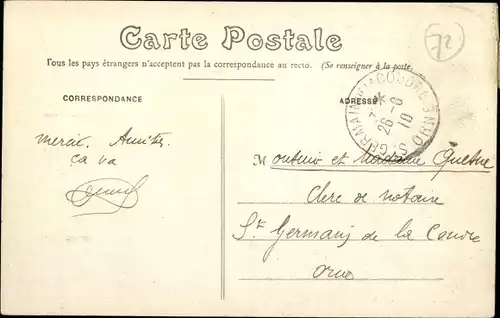 Carte Postale
Tous les pays étrangers n'acceptent pas la correspondance au recto. (Se renseigner à la poste)
72
CORRESPONDANCE
ADRESSE
ST GERMAIN DE LA COUDRE ORNE
26 - 6
10
merci. Amitiés
ça va
Monsieur et Madame
Clerc de notaire
St Germain de la Coudre
Orne